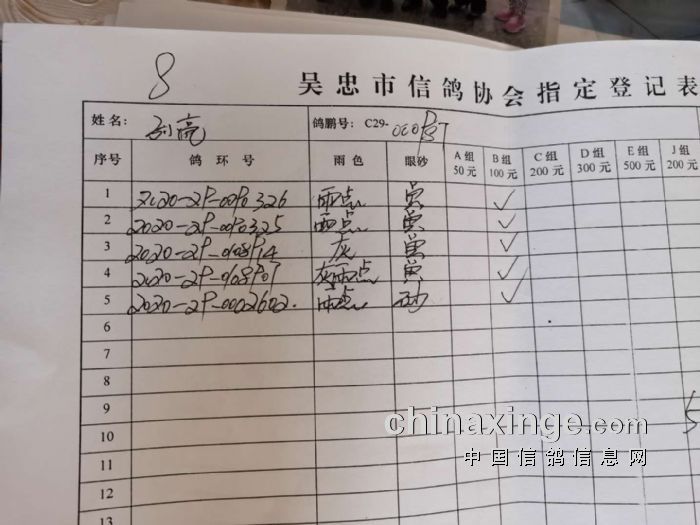 8
吴忠市信鸽协会指定登记表
姓名: 刘亮 鸽鹏号: C29-
序号 鸽环号 雨色 眼砂 A组 50元 B组 100元 C组 200元 D组 300元 E组 500元 J组 200元
1 雨点 黄 ✓
2 雨点 黄 ✓
3 灰 黄 ✓
4 灰雨点 黄 ✓
5 2020-29-0002602. 雨点 砂 ✓
6
7
8
9
10
11
12
13
chinaxinge.com
中国信鸽信息网